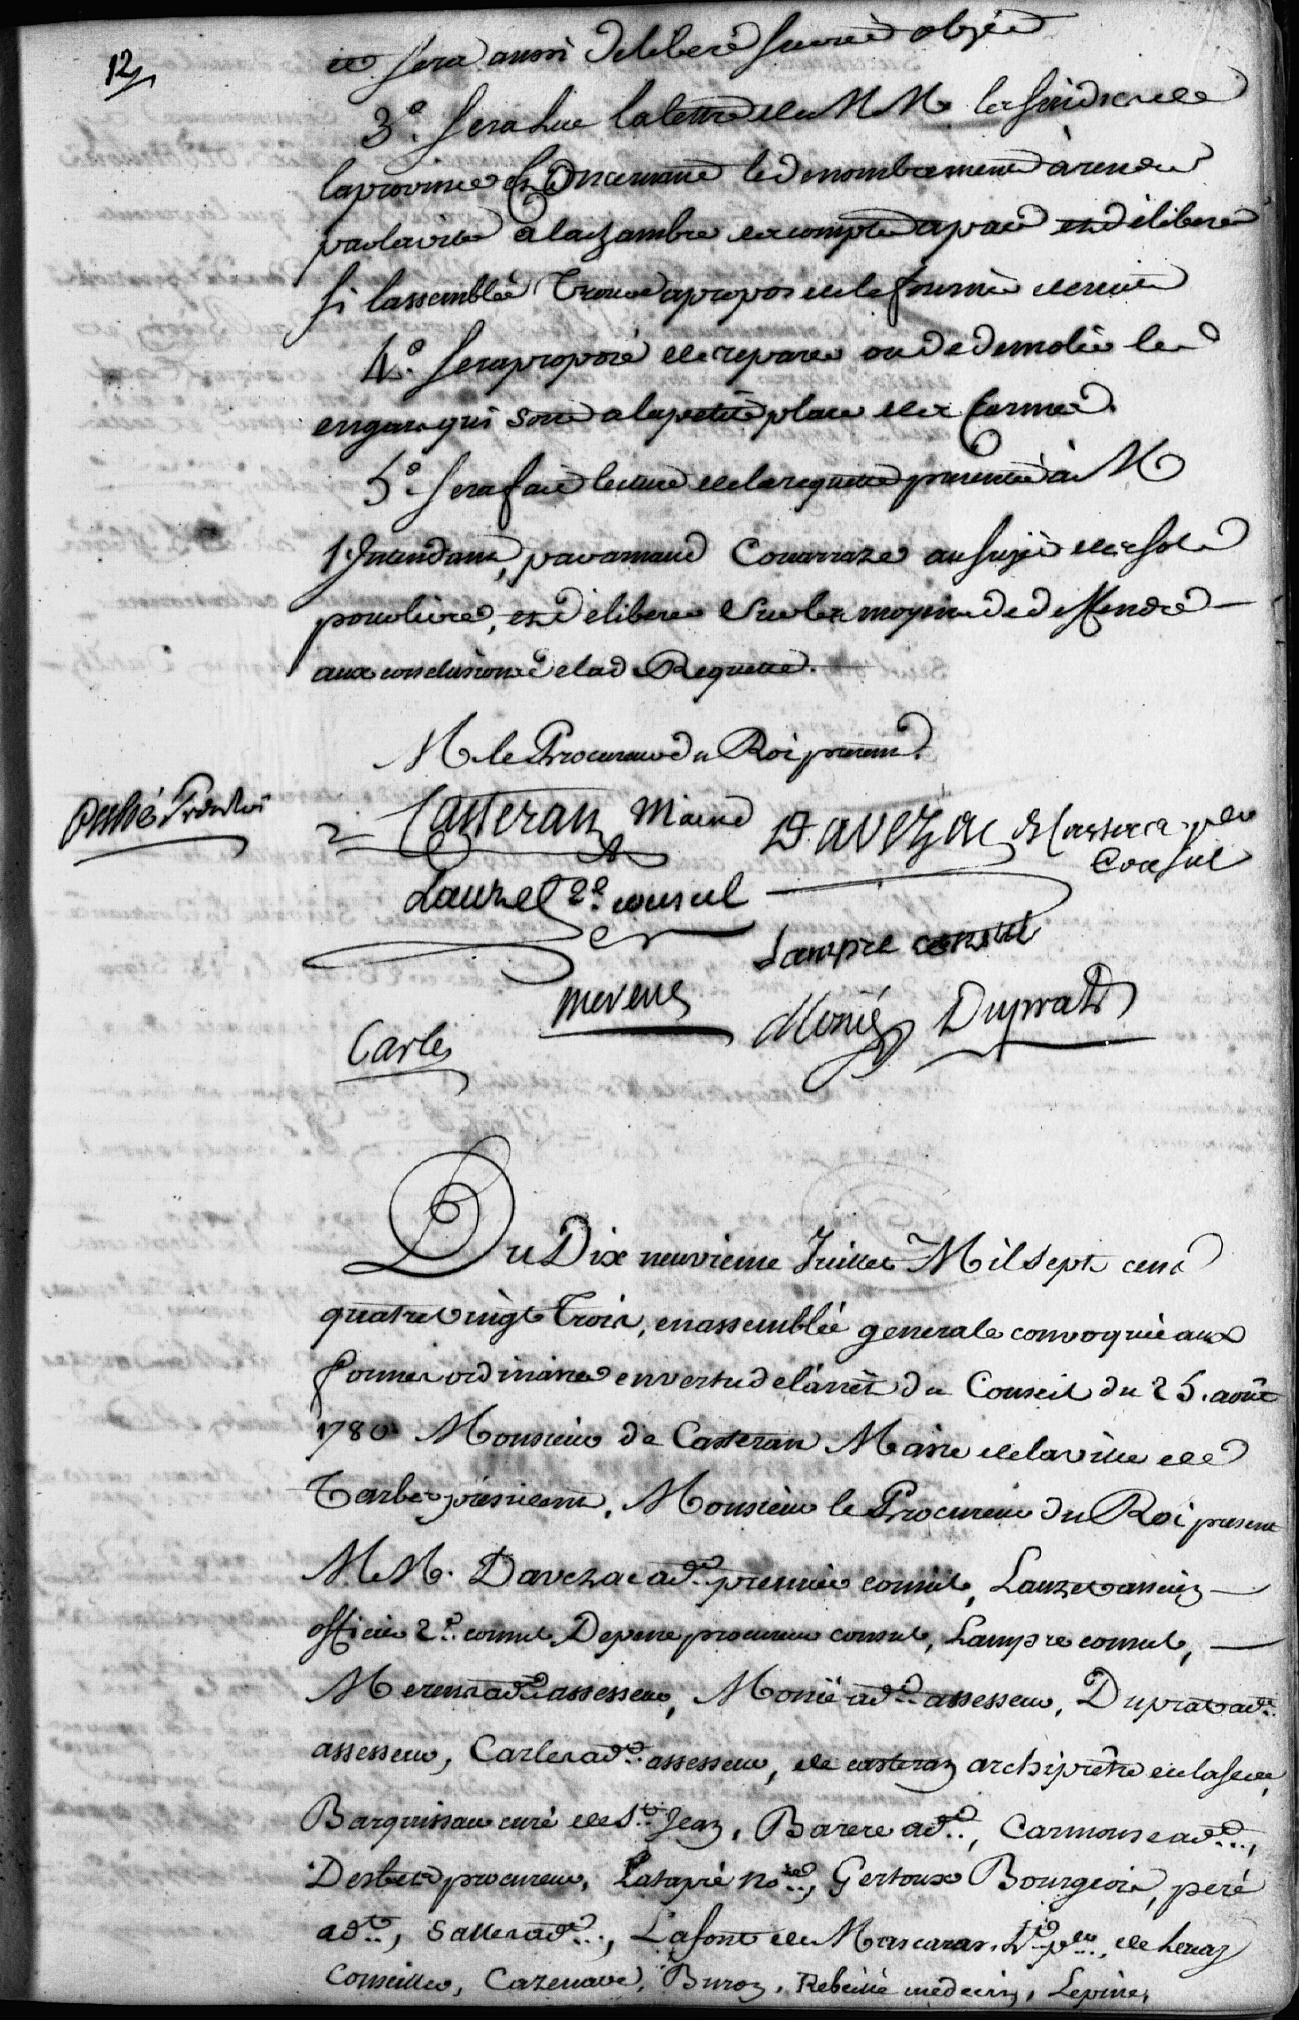 12
et sera aussi deliberé sur cèt objét
3º. sera Lue la lettre de M M. les sindics de
la province Concernant le denombrement à rendre
par la ville a la chambre des comptes apaü et deliberé
si lassemblée Trouve apropos de le fournir de suite
4º. sera proposé de reparer ou de demolir les
engars qui sont a la petite place des Carmes.
5º. sera fait lecture de la requette presentée à M
l'Intendant, par arnaud Couarraze au sujet de
, et deliberé sur les moyens de deffendre
aux conclusions de lad. Requette.
M. le Procureur du Roi present.
Casteran Maire
Davezac premier Consul
Lauzet 2e. consul
Lampre consul
merens
Monié Duprat
Carles
Du Dix neuvieme Juillet Mil Sept cens
quatre vingt Trois, en assemblée generale convoquée aux
formes ordinaires en vertu de l'arrèt du Conseil du 25. août
1780 Monsieur de Casteran Maire de la ville de
Tarbes président. Monsieur le Procureur du Roi present
M.M. Davezac ad.t premier consul, Lauzet ancien
officier 2e. consul, Depene procureur consul, Lampre consul,
Merens ad.t assesseur, Monié ad.t assesseur, Duprat ad.t
assesseur, Carles ad.t assesseur, de casteran archiprêtre de la sede,
Barquissau curé de St. Jean, Barere ad.t, Carmouse ad.t,
Desbets procureur, Latapié no.re, Gertoux Bourgeois, peré
ad.t, Salles ad.t, Lafont de Mascaras, de heras
Conseiller, Cazenave, Buron, Rebeillé medecin, Lepine,